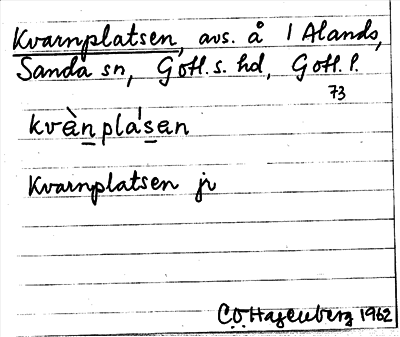 Kvarnplatsen, avs. å 1 Alands,
Sanda sn, Gotl. s. hd, Gotl. l.
73
kvànplásen
Kvarnplatsen jr
C.O. Hagenberg 1962